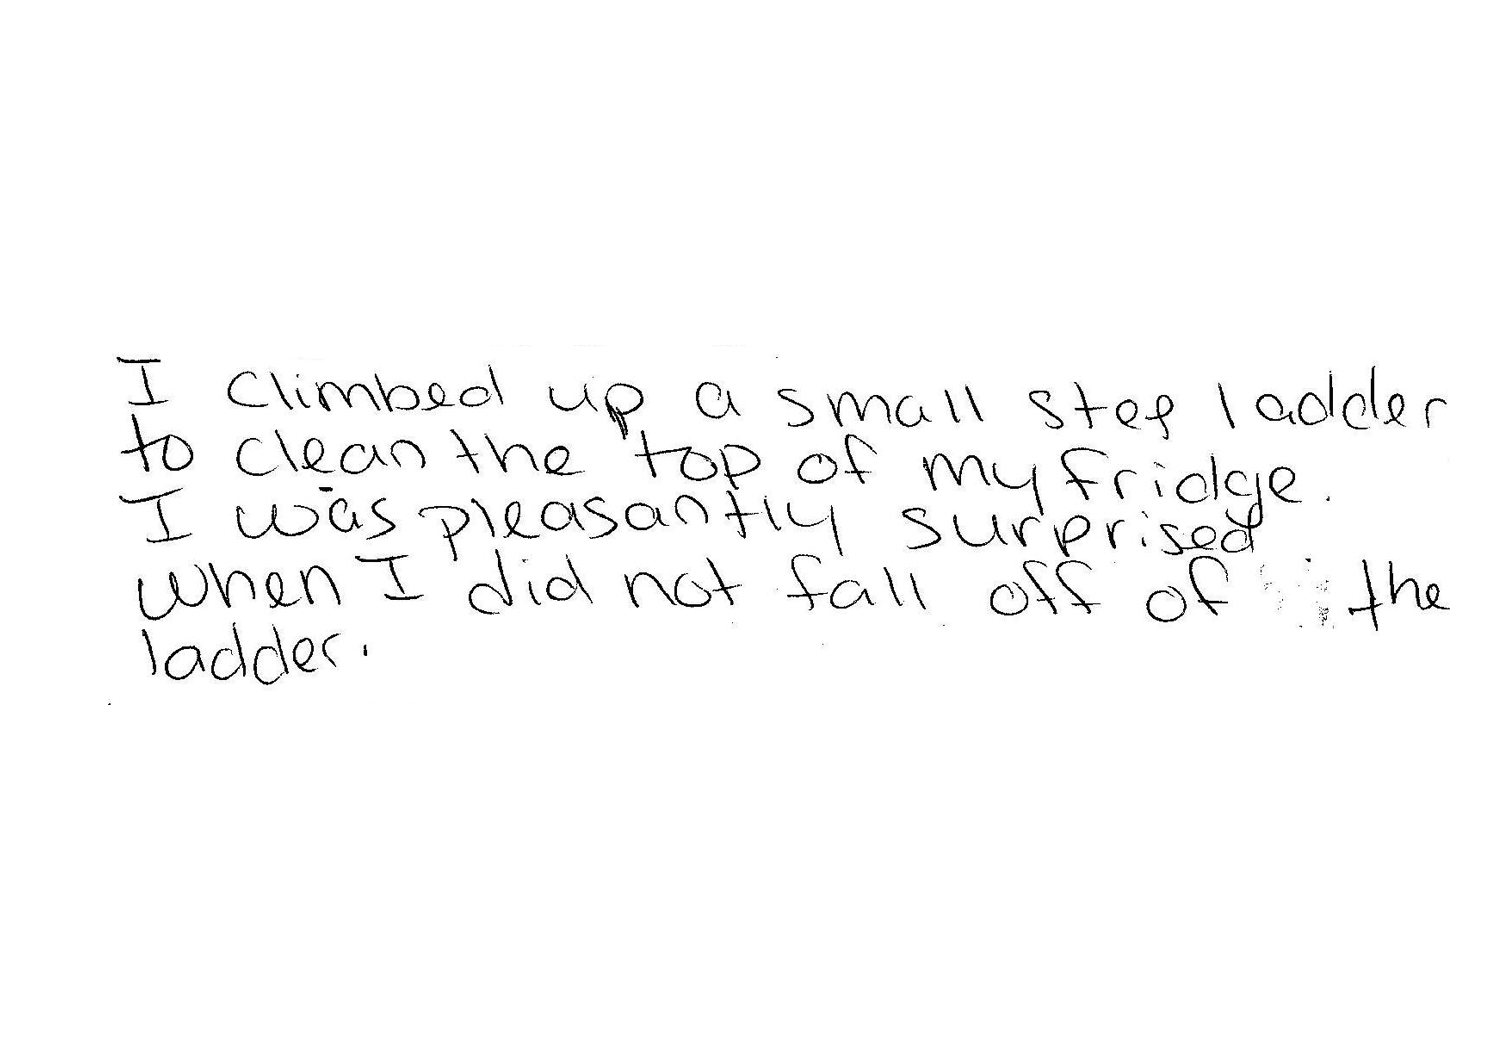 I climbed up a small step ladder
to clean the top of my fridge.
I was pleasantly surprised
when I did not fall off of the
ladder.